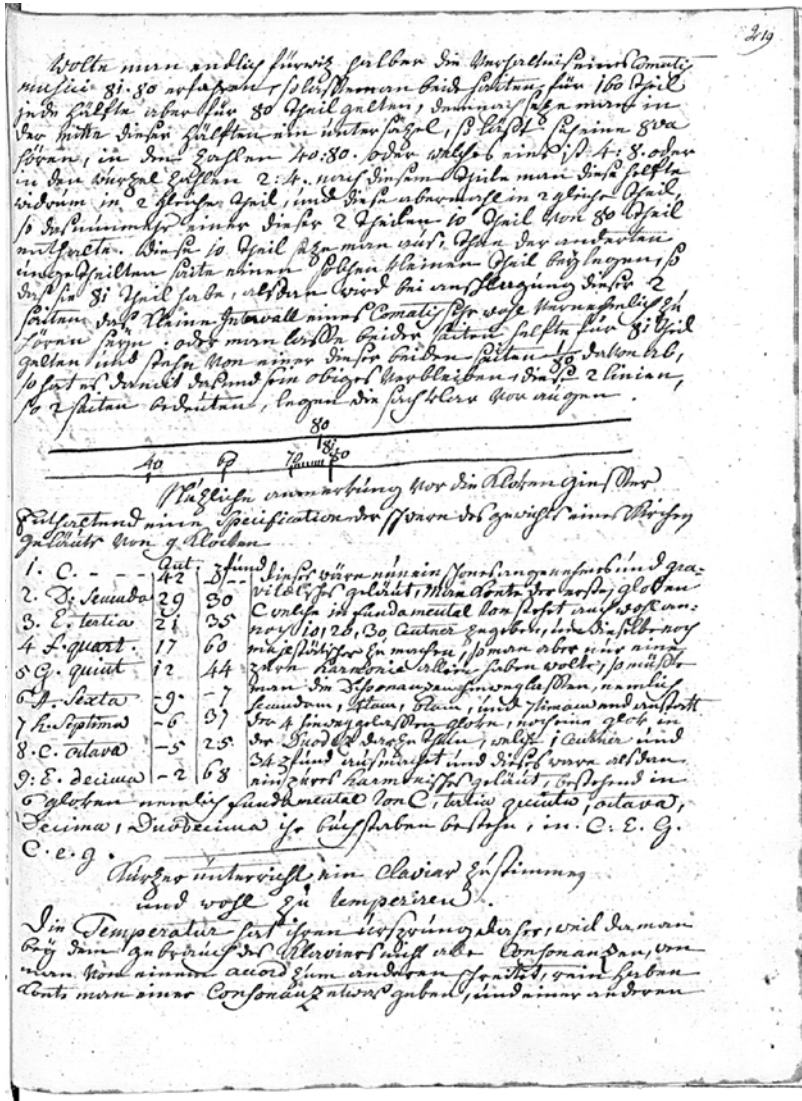 219
Wolte man endlich fürwiz halber die Verhaltnis eines Comatis
musici 81.80 erfahren, so lasse man beide saiten für 160 Theil
jede hälfte aber für 80 Theil gelten, demnach seze man in
der mitte dieser hälften ein untersäzel, so läßt sich eine 8va
hören, in den zahlen 40:80. oder welches eins ist 4:8. oder
in den wurzel zahlen 2:4. nach diesem theile man diese helfte
widrum in 2 gleiche Theil, und diese abermahl in 2 gleiche Theil,
so das nunmehr einer dieser 2 Theilen 10 Theil von 80 Theil
enthalte. diese 10 Theil seze man aus, thue der anderten
ungetheilten saite einen solchen kleinen Theil beylegen, so
das sie 81 Theil habe, alsdan wird bei anschlagung dieser 2
saiten das kleine Intervall eines Comatis sehr wohl vernehmlich zu
hören seyn: oder man lasse beider saiten helfte für 81 Theil
gelten und stehe von einer dieser beiden saiten 1/80 davon ab,
so hat es damit das und sein obiges verbleiben, diese 2 linien,
so 2 saiten bedeuten, legen die sach klar vor augen.
80
81
40 60 70 80
Nuzliche anmerkung vor die Kloken giesser
Enthaltend eine Specification der schwere des gewichts eines Kirchen
geläuts von 9 Klocken
Cent. pfund
1. C. - - - 42 - - - dieses wäre nun ein schönes angenehmes und gra-
2. D. Secunda 29 30 vitetisches geläut, man konte der ersten gloken
3. E. tertia 21 35 C welche in fundamental ton stehet auch wohl an-
4 F. quart. 17 60 noch 10, 20, 30, Centner zugeben, um dieselbe noch
5 G. quint 12 44 majestätischer zu machen, so man aber nur eine
6 A. Sexta -9- -7 reine harmonie allein haben wolte, so müste
7 h. Septima -6 37 man die Dissonanzen hinweglassen, nemlich
8. C. octava -5 25. Secundam, 4tam, 6tam, und 7timam und anstatt
9: E. decima -2 68 der 4 hinweggelassten gloke, noch eine glok in
der Duodez darzu thun, welche 1 Centner und
34 pfund ausmacht und dieses ware alsdan
ein pures harmonisches geläut, bestehend in
6 gloken nemlich fundamental ton C, tertia quinta, octava,
Decima, Duodecima ihr buchstaben bestehn, in. C. E. G.
C. e. g.
Kurzer unterricht ein Clavier zustimmen
und wohl zu temperiren.
Die Temperatur hat ihren ursprung daher, weil da man
bey dem gebrauch des Klaviers nicht alle Consonanzen, wen
man von einem accord zum anderen schreitet, rein haben
konte man einer Consonanz etwas geben, und einer anderen